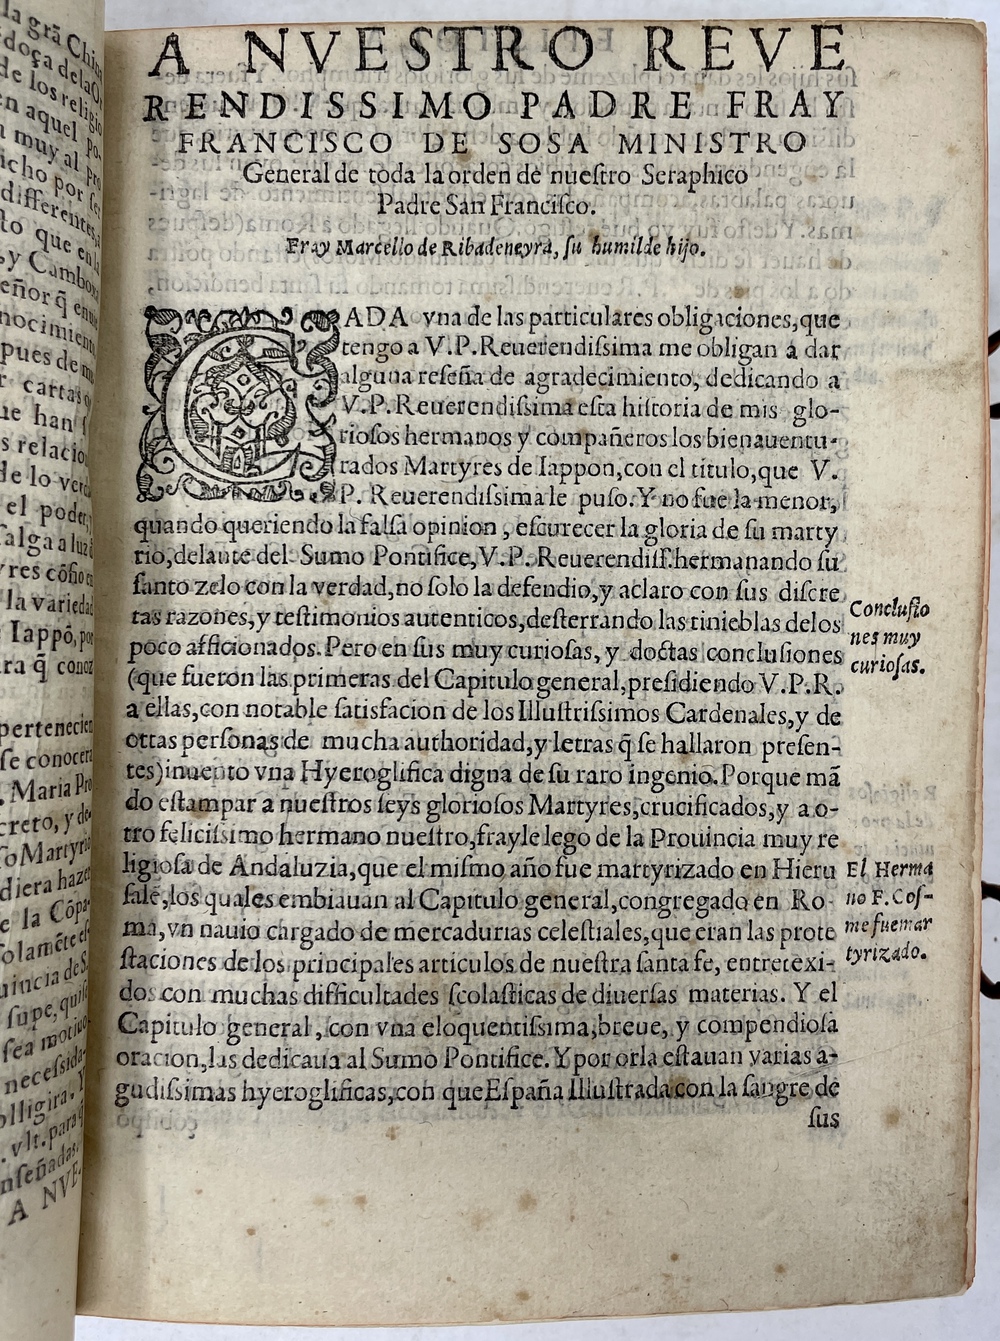 la grã Chin
doça dela O
de los religio
en aquel po
a muy al pro
icho por ser
differentes,
to que en la
, y Camboxa
eñor q̃ enuo
nocimiento
pues de mo
r cartas q
ue han
s relacio
de lo verda
el poder,
salga a luz
yres cõfio en
la variedad
Iappõ, por
ra q̃ conoz
pertenecien
se conocera
. Maria Pro
creto, y de
so Martyrio
diera hazer
e la Cõpa
solamẽte es
uincia de S.
supe, quise
sea motiuo
necessida
olligira. Y
. vlt. para q̃
nseñadas.
A NVE-
A NVESTRO REVE
RENDISSIMO PADRE FRAY
FRANCISCO DE SOSA MINISTRO
General de toda la orden de nuestro Seraphico
Padre San Francisco.
Fray Marcello de Ribadeneyra, su humilde hijo.
CADA vna de las particulares obligaciones, que
tengo a V.P. Reuerendissima me obligan a dar
alguna reseña de agradecimiento, dedicando a
V.P. Reuerendissima esta historia de mis glo-
riosos hermanos y compañeros los bienauentu-
rados Martyres de Iappon, con el titulo, que V.
P. Reuerendissima le puso. Y no fue la menor,
quando queriendo la falsa opinion, escurecer la gloria de su marty
rio, delante del Sumo Pontifice, V.P. Reuerendiss. hermanando su
santo zelo con la verdad, no solo la defendio, y aclaro con sus discre
tas razones, y testimonios autenticos, desterrando las tinieblas delos
poco afficionados. Pero en sus muy curiosas, y doctas conclusiones
(que fueron las primeras del Capitulo general, presidiendo V.P.R.
a ellas, con notable satisfacion de los Illustrissimos Cardenales, y de
otras personas de mucha authoridad, y letras q̃ se hallaron presen-
tes) inuento vna Hyeroglifica digna de su raro ingenio. Porque mã
do estampar a nuestros seys gloriosos Martyres, crucificados, y a o-
tro felicissimo hermano nuestro, frayle lego de la Prouincia muy re
ligiosa de Andaluzia, que el mismo año fue martyrizado en Hieru
salẽ, los quales embiauan al Capitulo general, congregado en Ro-
ma, vn nauio cargado de mercadurias celestiales, que eran las prote
staciones de los principales articulos de nuestra santa fe, entretexi-
dos con muchas difficultades scolasticas de diuersas materias. Y el
Capitulo general, con vna eloquentissima, breue, y compendiosa
oracion, las dedicaua al Sumo Pontifice. Y por orla estauan varias a-
gudissimas hyeroglificas, con que España Illustrada con la sangre de
sus
Conclusio
nes muy
curiosas.
El Herma
no F. Cos-
me fue mar
tyrizado.